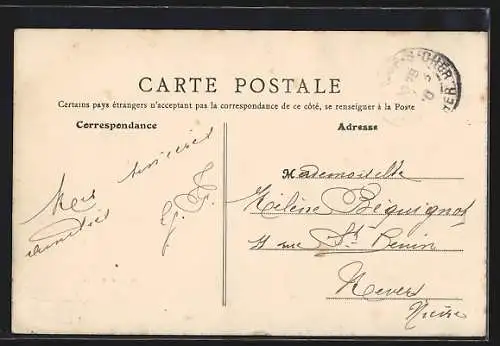 CARTE POSTALE
Certains pays étrangers n'acceptant pas la correspondance de ce côté, se renseigner à la Poste
Correspondance
Adresse
Mes
amitiés
Mademoiselle
Hélène Béguignot
rue St Benin
Nevers
Nièvre